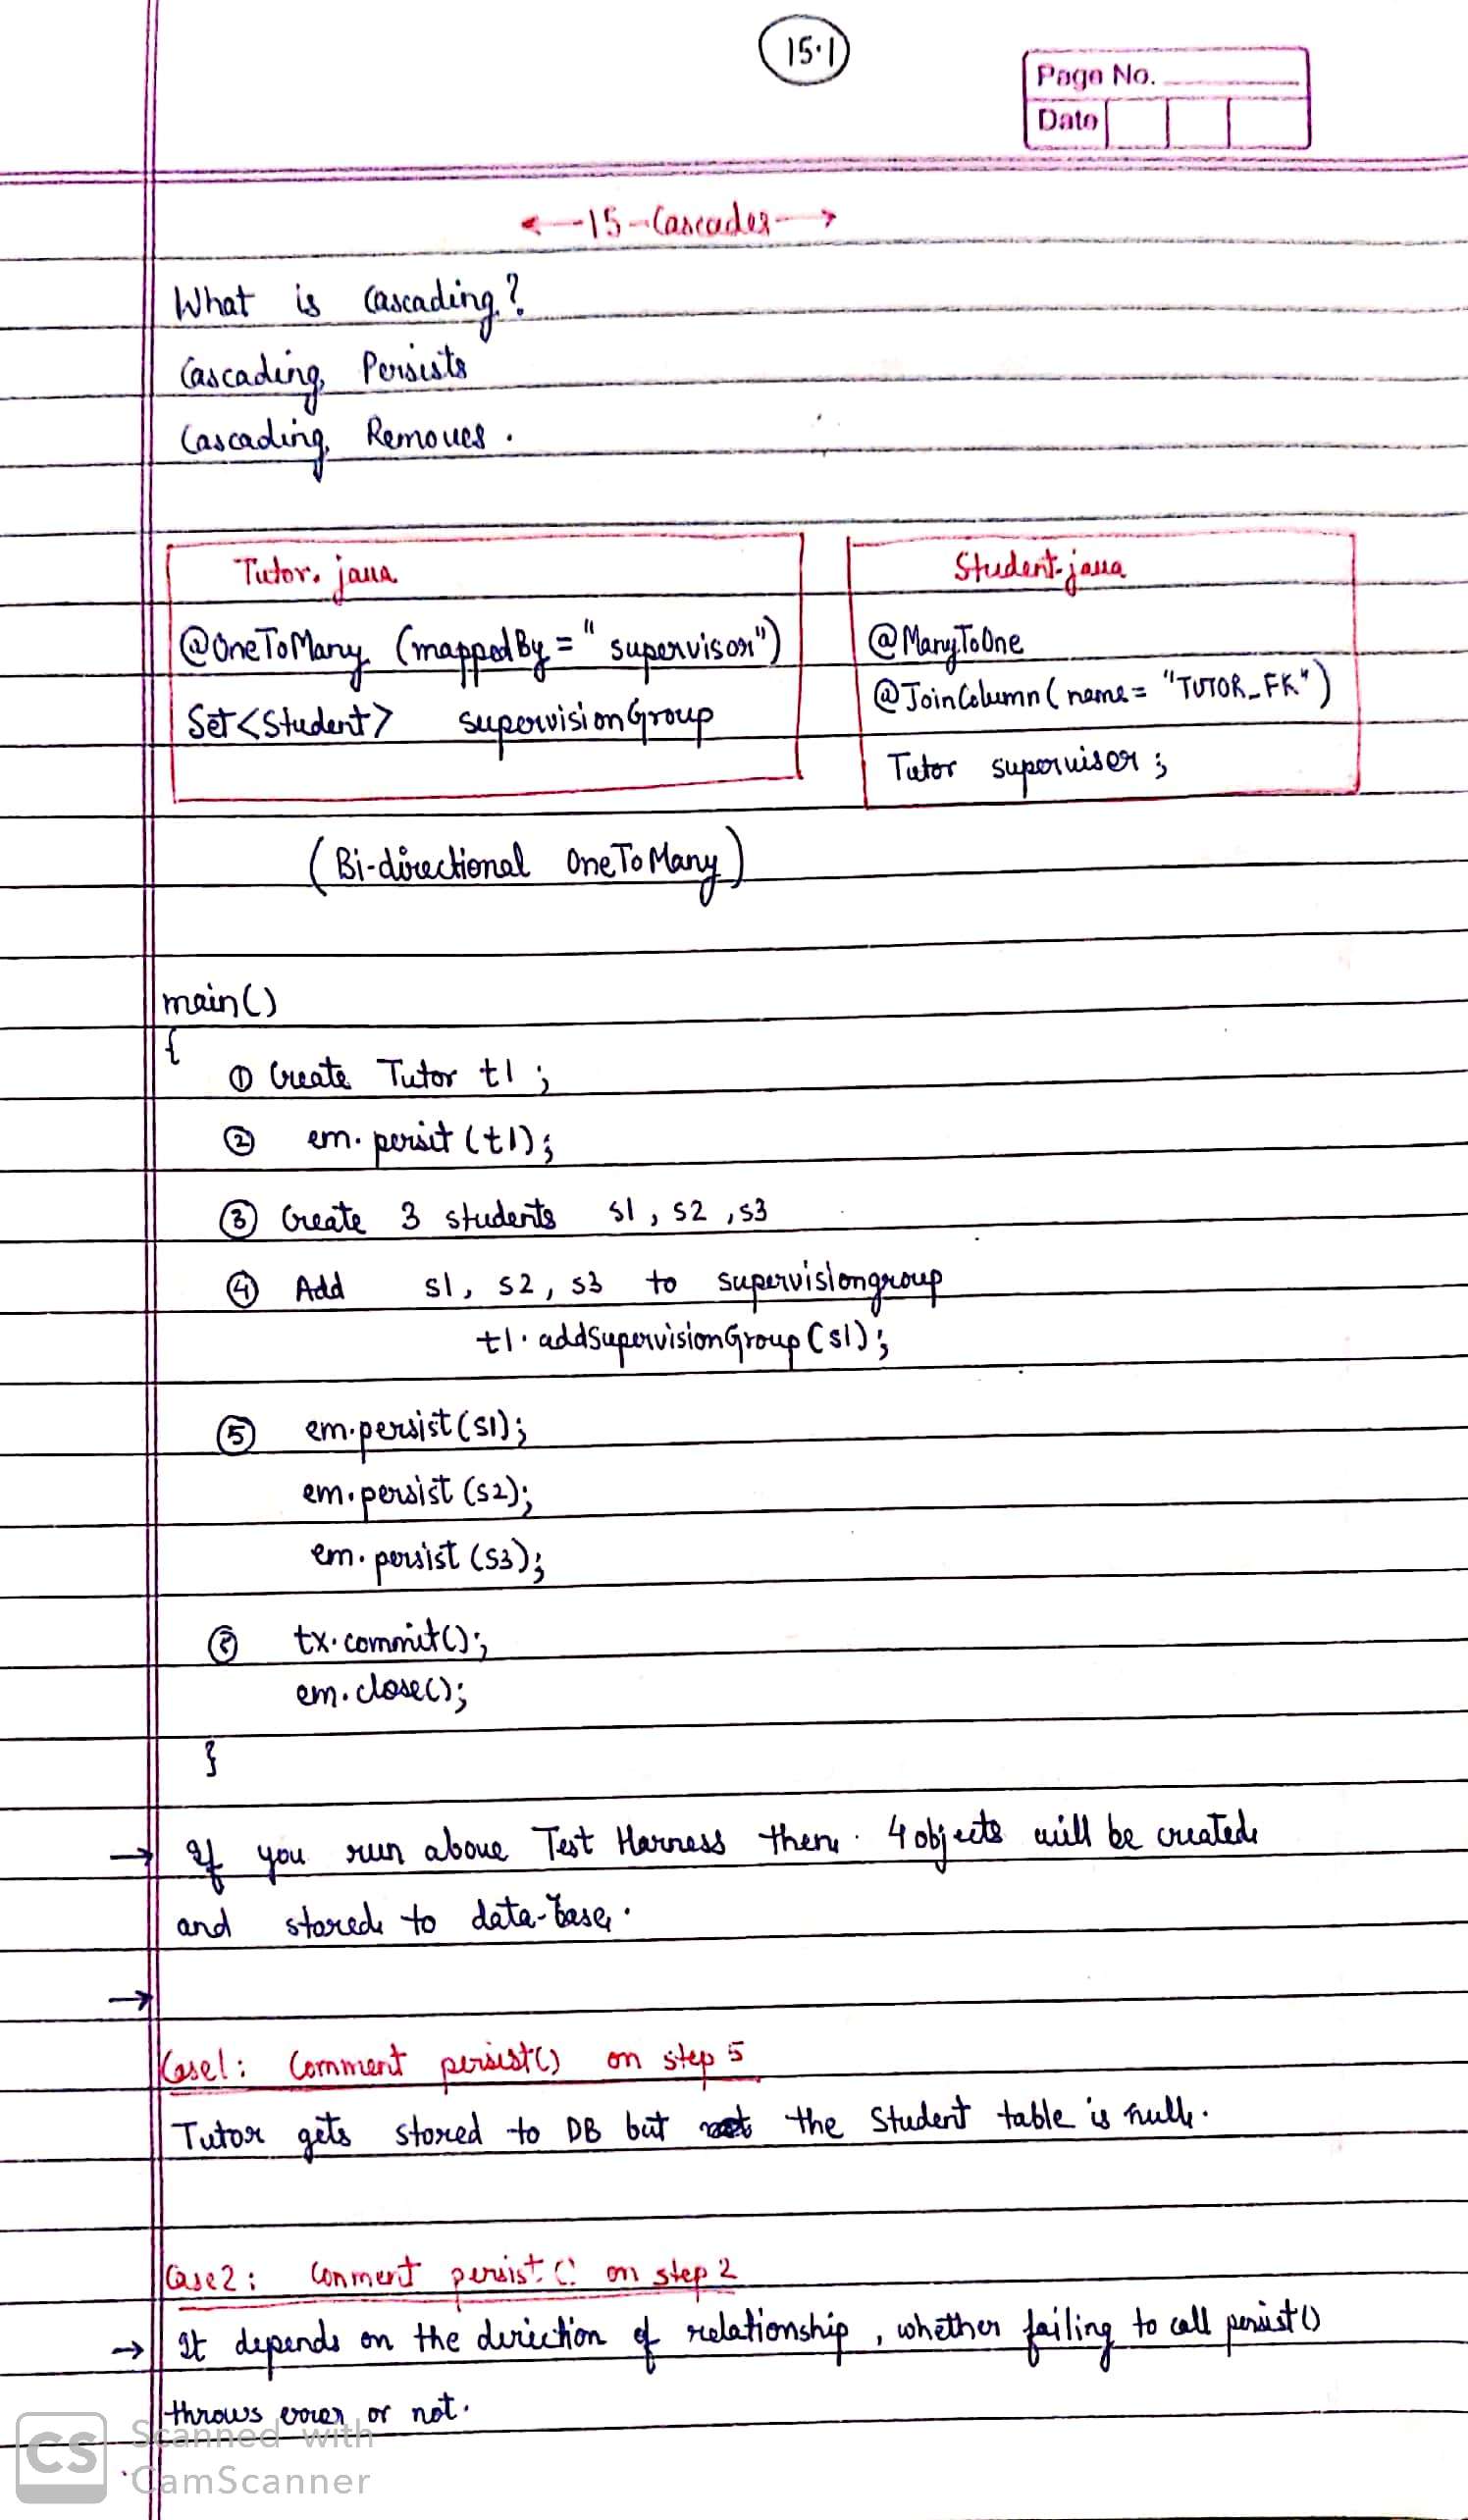 15.1
Page No.
Date
15 - Cascades
What is Cascading?
Cascading Persists
Cascading Removes.
Tutor.java
@OneToMany (mappedBy = "supervisor")
Set<Student> supervisionGroup
Student.java
@ManyToOne
@JoinColumn (name = "TUTOR_FK")
Tutor supervisor;
(Bi-directional OneToMany)
main()
{
① Create Tutor t1;
② em.persit (t1);
③ Create 3 students s1, s2, s3
④ Add s1, s2, s3 to supervisiongroup
t1.addSupervisionGroup (s1);
⑤ em.persist (s1);
em.persist (s2);
em.persist (s3);
tx.commit();
em.close();
}
→ If you run above Test Harness then 4 objects will be created
and stored to data-base.
→
Case1: Comment persist() on step 5
Tutor gets stored to DB but the Student table is null.
Case2: Comment persist() on step 2
→ It depends on the direction of relationship, whether failing to call persist()
throws error or not.
CS Scanned with
CamScanner